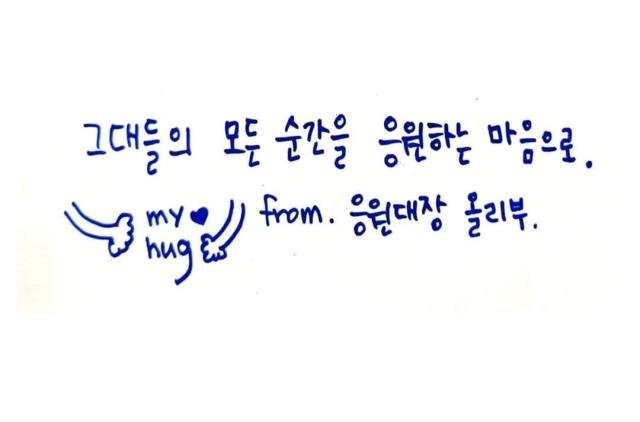 그대들의 모든 순간을 응원하는 마음으로.
my♥ hug from. 응원대장 올리부.